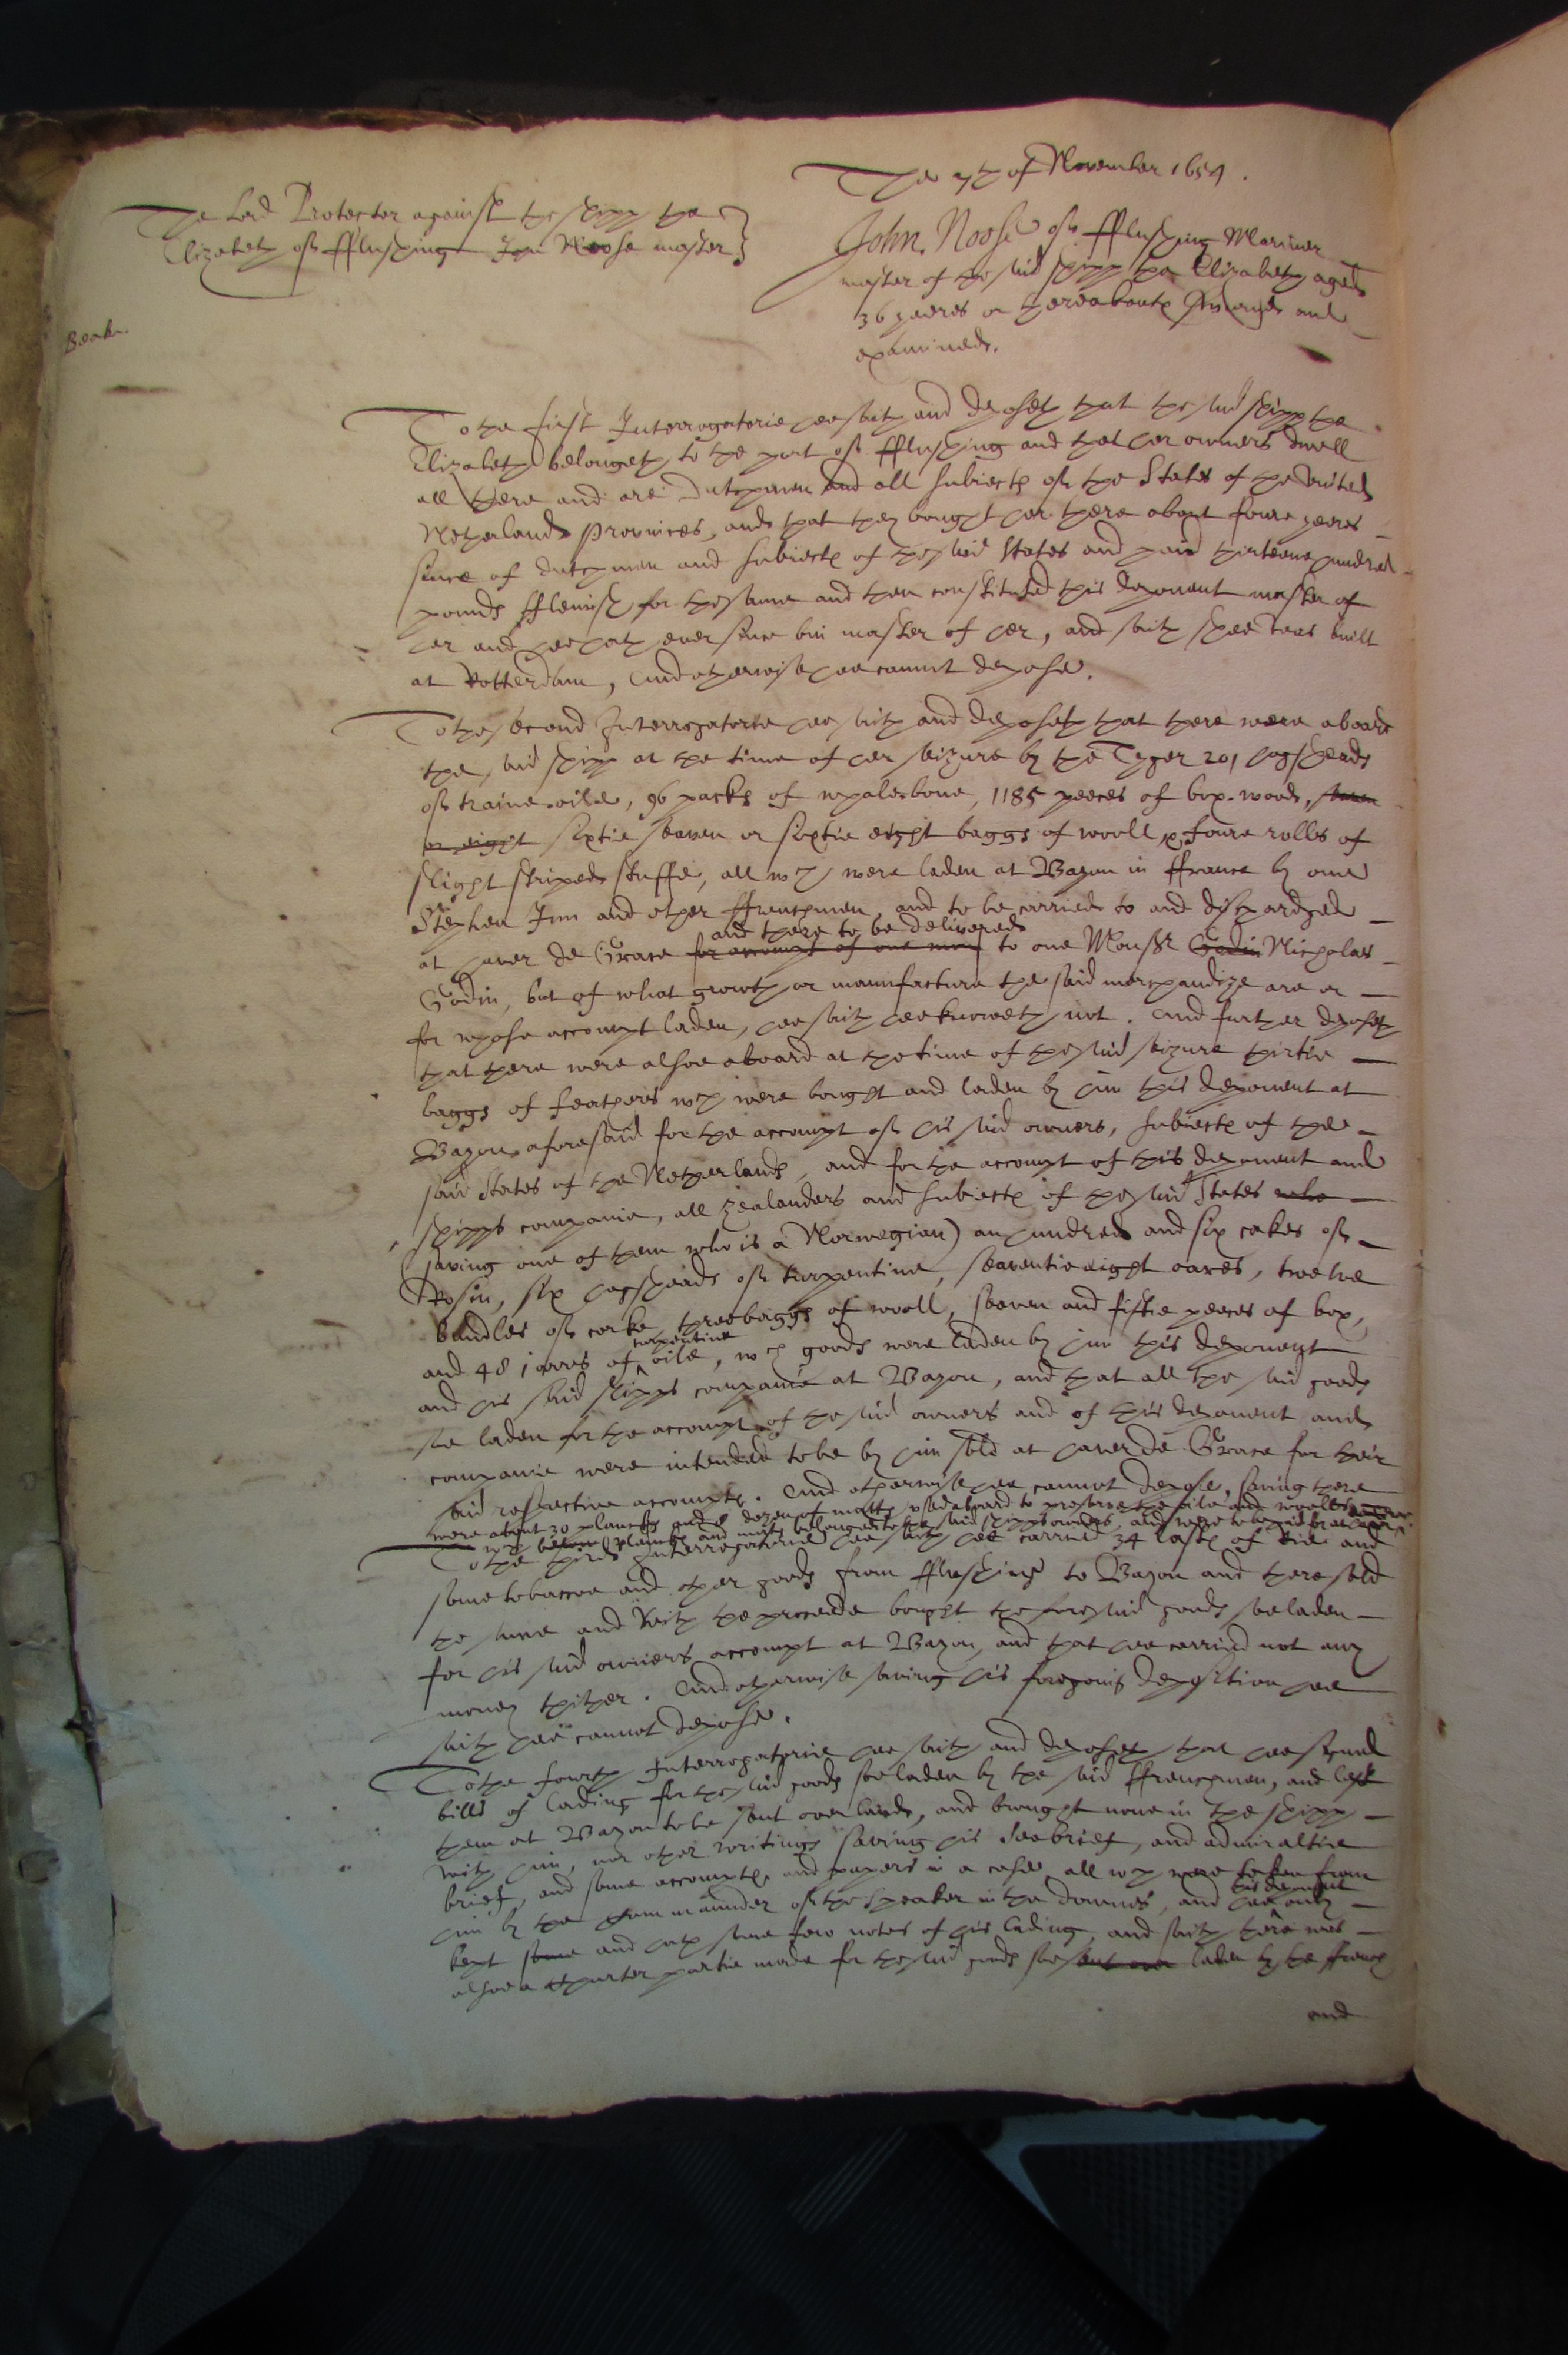 The 7th of November 1654.
The Lord Protector against the shipp the
Elizabeth of fflushing John Noose master
John Noose of fflushing Mariner
master of the said shipp the Elizabeth aged
36 yeeres or thereabouts sworne and
examined.
To the first Interrogatorie hee saith and deposeth that the said shipp the
Elizabeth belongeth to the port of fflushing and that her owners dwell
all there and are dutchmen and all subiects of the States of the United
Netherlands Provinces, and that they bought her there about foure yeeres
since of dutchmen and subiects of the said States and paid thirteene hundred
pounds fflemish for the same and then constituted this deponent master of
her and hee hath ever since bin master of her, and saith shee was built
at Rotterdam, And otherwise hee cannot depose.
To the second Interrogatorie hee saith and deposeth that there were aboard
the said shipp at the time of her seizure by the Tyger 201 hogsheads
of traine oile, 96 packs of whalebone, 1185 peeces of box-wood, seaven
or eight sixtie seaven or sixtie eight baggs of wooll, foure rolls of
slight striped stuffe, all wch were laden at Bayon in ffrance by one
Stephen and other ffrenchmen, and to be carried to and dischardged
and there to be delivered
at haver de Grace for accompt of one to one Monsr Godin Nicholas
Godin, but of what growth or manufacture the said merchandize are or
for whose accompt laden, hee saith hee knoweth not. And further deposeth
that there were alsoe aboard at the time of the said seizure thirtie
baggs of feathers wch were bought and laden by him this deponent at
Bayon aforesaid for the accompt of his said owners, subiects of the
said States of the Netherlands, and for the accompt of this deponent and
shipps companie, all Zealanders and subiects of the said States who
(saving one of them who is a Norwegian) an hundred and six cakes of
Rosin, six hogsheads of turpentine, seaventie eight oares, twelve
bundles of corke, three baggs of wooll, seaven and fiftie peeces of box,
turpentine
and 48 iarres of oile, wch goods were laden by him this deponent
and his said shipps companie at Bayon, and that all the said goods
soe laden for the accompt of the said owners and of this deponent and
companie were intended to be by him sold at haver de Grace for their
said respective accompts. And otherwise hee cannot depose, saving there
were about 30 plancks and dozen of matts used aboard to preserve the oile and wooll
wch plancks and matts belonged to the said shipps owners, and were to be
To the third Interrogatorie hee saith hee carried 34 lasts of and
some tobaccoe and other goods from fflushing to Bayon and there sold
the same and with the proceede bought the foresaid goods soe laden
for his said owners accompt at Bayon, and that hee carried not any
money thither. And otherwise saving his foregoing deposition hee
saith hee cannot depose.
To the fourth Interrogatorie hee saith and deposeth that hee signed
bills of lading for the said goods soe laden by the said ffrenchmen, and left
them at Bayon to be sent over land, and brought none in the shipp
with him, nor other writings saving his Seabrief, and admiraltie
brief, and some accompts and papers in a case all wch were taken from
this deponent
him by the commaunder of the Speaker in the downes, and hee only
kept some and hath some few notes of his lading, and saith there was
alsoe a charter partie made for the said goods soe sent over laden by the french
and